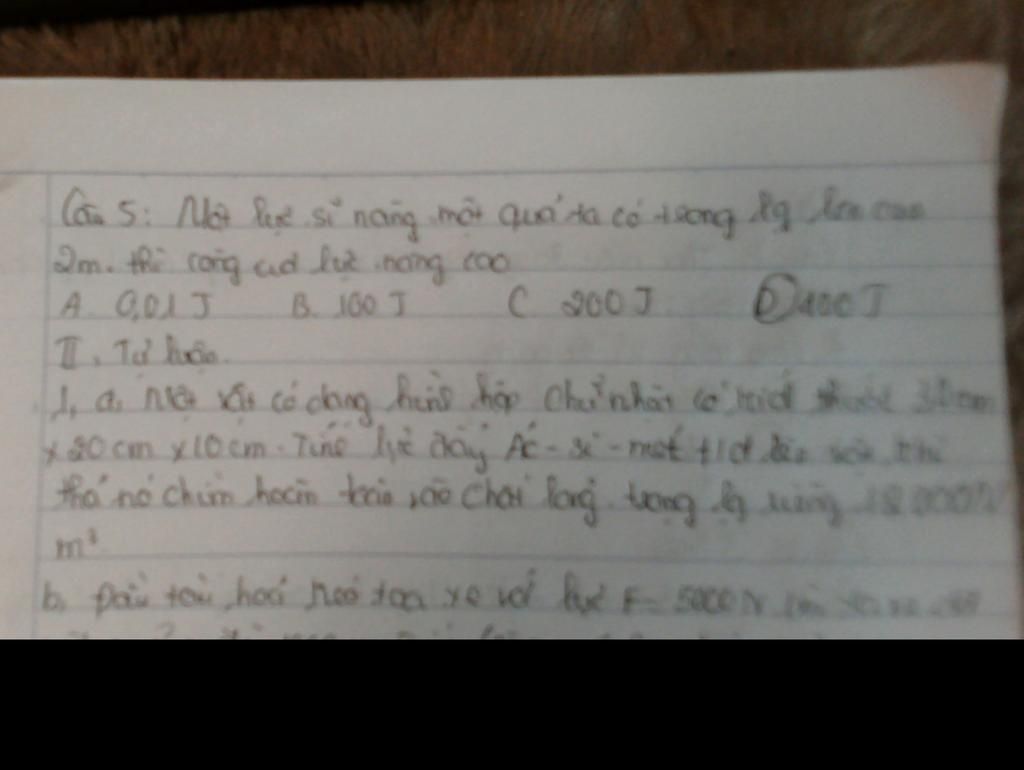 Câu 5: Một lực sĩ nâng một quả tạ có trọng lg lên cao
2m. thì công của lực nâng
A. 0,01 J B. 100 J C 200 J D 400 J
II. Tự luận.
1, a, Một vật có dạng hình hộp chữ nhật có kích thước
x 20 cm x 10 cm. Tính lực đẩy Ác-si-mét t/d lên vật khi
thả nó chìm hoàn toàn vào chất lỏng trọng lg riêng
m³
b, Đầu tàu hoả kéo toa xe với lực F = 5000 N